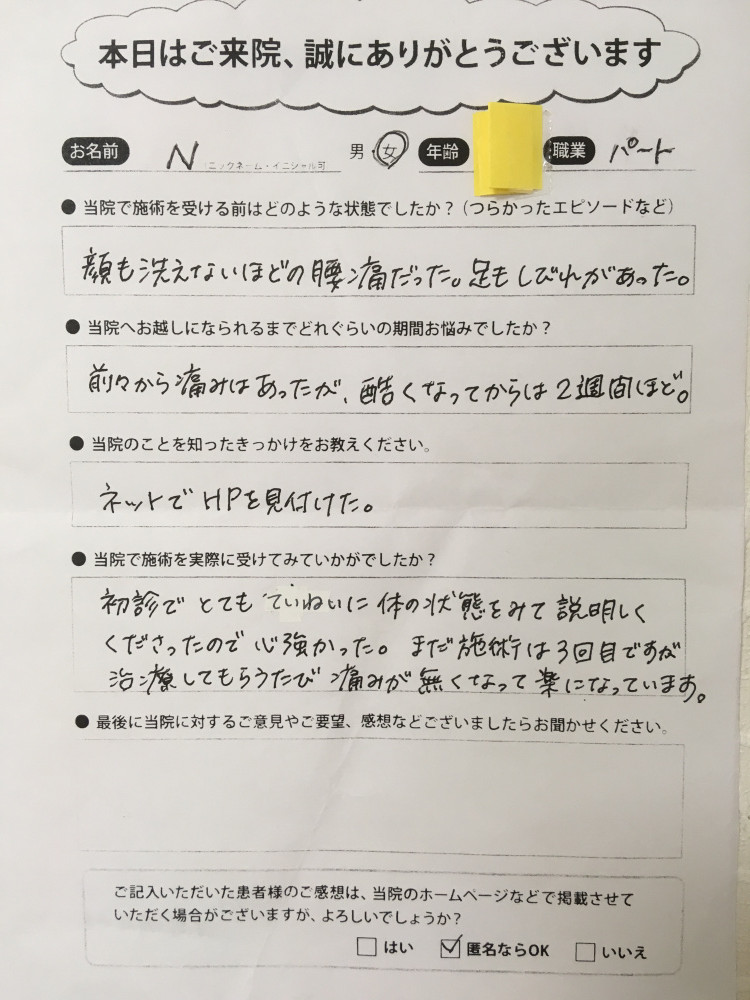 本日はご来院、誠にありがとうございます
お名前 N (ニックネーム・イニシャル可 男・女 年齢 職業 パート
● 当院で施術を受ける前はどのような状態でしたか？（つらかったエピソードなど）
顔も洗えないほどの腰痛だった。足もしびれがあった。
● 当院へお越しになられるまでどれぐらいの期間お悩みでしたか？
前々から痛みはあったが、酷くなってからは2週間ほど。
● 当院のことを知ったきっかけをお教えください。
ネットでHPを見付けた。
● 当院で施術を実際に受けてみていかがでしたか？
初診でとてもていねいに体の状態をみて説明しく
くださったので心強かった。まだ施術は3回目ですが
治療してもらうたび痛みが無くなって楽になっています。
● 最後に当院に対するご意見やご要望、感想などございましたらお聞かせください。
ご記入いただいた患者様のご感想は、当院のホームページなどで掲載させて
いただく場合がございますが、よろしいでしょうか？
□ はい ☑ 匿名ならOK □ いいえ